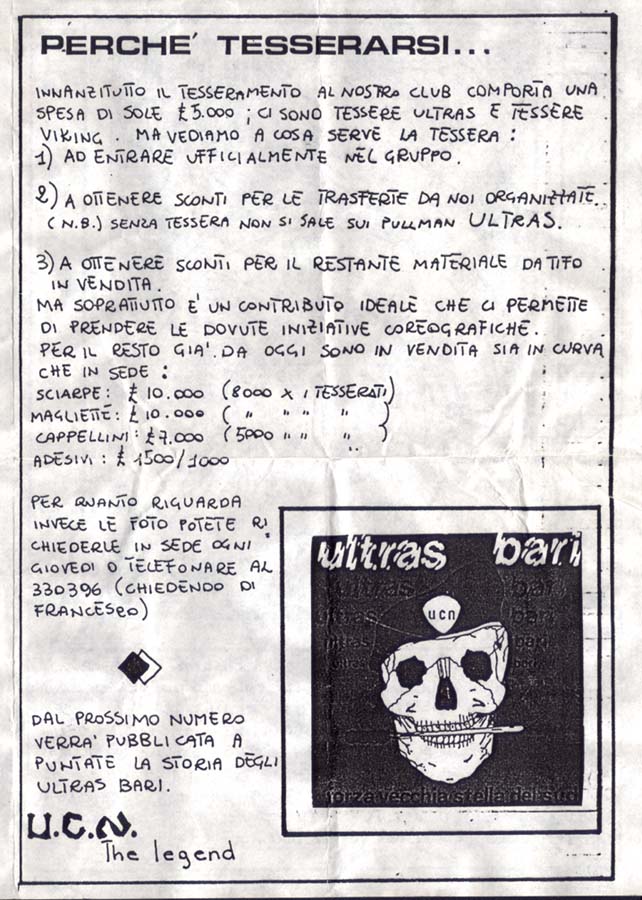 PERCHE' TESSERARSI...
INNANZITUTTO IL TESSERAMENTO AL NOSTRO CLUB COMPORTA UNA
SPESA DI SOLE £5.000 ; CI SONO TESSERE ULTRAS E TESSERE
VIKING . MA VEDIAMO A COSA SERVE LA TESSERA :
1) AD ENTRARE UFFICIALMENTE NEL GRUPPO.
2) A OTTENERE SCONTI PER LE TRASFERTE DA NOI ORGANIZZATE.
(N.B.) SENZA TESSERA NON SI SALE SUI PULLMAN ULTRAS.
3) A OTTENERE SCONTI PER IL RESTANTE MATERIALE DA TIFO
IN VENDITA.
MA SOPRATTUTTO E' UN CONTRIBUTO IDEALE CHE CI PERMETTE
DI PRENDERE LE DOVUTE INIZIATIVE COREOGRAFICHE.
PER IL RESTO GIA' DA OGGI SONO IN VENDITA SIA IN CURVA
CHE IN SEDE :
SCIARPE : £ 10.000 (8000 X I TESSERATI)
MAGLIETTE: £ 10.000 ( " " " " )
CAPPELLINI : £7.000 (5000 " " " )
ADESIVI : £ 1500/1000
PER QUANTO RIGUARDA
INVECE LE FOTO POTETE RI
CHIEDERLE IN SEDE OGNI
GIOVEDI O TELEFONARE AL
330396 (CHIEDENDO DI
FRANCESCO)
ultras bari
ultras bari
ultras bari
ultras bari
ultras bari
ucn
forza vecchia stella del sud
DAL PROSSIMO NUMERO
VERRA' PUBBLICATA A
PUNTATE LA STORIA DEGLI
ULTRAS BARI.
U.C.N.
The legend